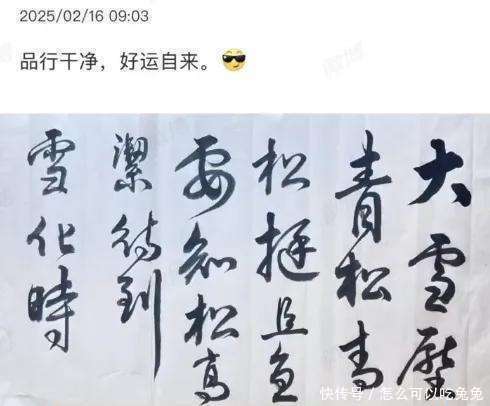 2025/02/16 09:03
品行干净，好运自来。😎
大雪壓
青松青
松挺且直
要知松高
潔待到
雪化時
快传号/怎么可以吃兔兔